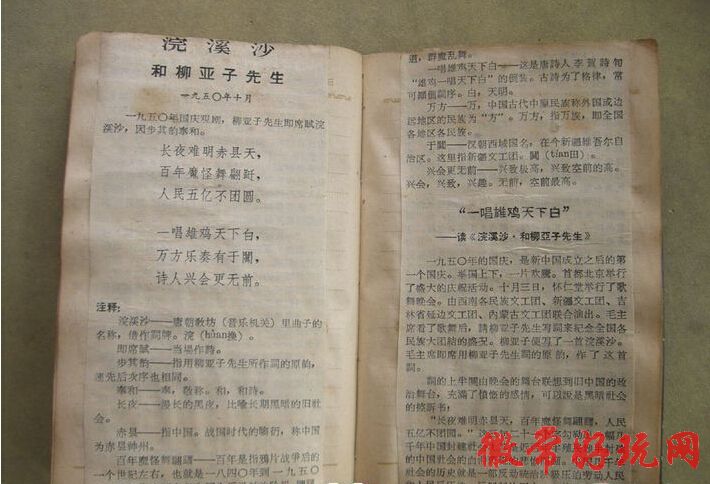 浣溪沙
和柳亚子先生
一九五〇年十月
一九五〇年国庆观剧，柳亚子先生即席赋浣
溪沙，因步其韵奉和。
长夜难明赤县天，
百年魔怪舞翩跹，
人民五亿不团圆。
一唱雄鸡天下白，
万方乐奏有于阗，
诗人兴会更无前。
注释：
浣溪沙——唐朝教坊（音乐机关）里曲子的
名称，借作詞牌。浣（huàn换）。
即席賦——当場作詩。
步其韵——指用柳亚子先生所作詞的原韵，
連先后次序也相同。
奉和——奉，敬称。和，和詩。
长夜——漫长的黑夜，比喻长期黑暗的旧社
会。
赤县——指中国。战国时代的騶衍，称中国
为赤县神州。
百年魔怪舞翩躚——百年是指鴉片战爭后的
一个世紀左右，也就是一八四〇年到一九五〇
道，群魔乱舞。
一唱雄鸡天下白——这是唐詩人李賀詩句
“雄鸡一唱天下白”的倒装。古詩为了格律，常
可顚倒詞序。白，天明。
万方——方，中国古代中原民族称外国或边
远地区的民族为“方”。万方，指万族，即全国
各地区各民族。
于闐——汉朝西域国名，在今新疆維吾尔自
治区。这里指新疆文工团。闐（tián田）。
兴会更无前——兴致极高，兴致空前的高。
兴会，兴致，兴趣。无前，空前最高。
“一唱雄鸡天下白”
——读《浣溪沙·和柳亚子先生》
一九五〇年的国庆，是新中国成立之后的第
一个国庆。举国上下，一片欢腾。首都北京举行
了盛大的庆祝活动。十月三日，怀仁堂举行了歌
舞晚会。由西南各民族文工团、新疆文工团、吉
林省延边文工团、內蒙古文工团联合演出。毛主
席看了歌舞后，請柳亚子先生写詞来紀念全国各
民族大团結的盛况。柳亚子便写了一首浣溪沙。
毛主席即席用柳亚子先生詞的原韵，作了这首
詞。
詞的上半闋由晚会的舞台联想到旧中国的政
治舞台，充滿了愤慨的感情，可以說是黑暗社会
的控訴书：
“长夜难明赤县天，百年魔怪舞翩躚，人民
五亿不团圆。”
千年中国封建社
中国的社会
会的历史就是一部反动統治
徽常好玩网